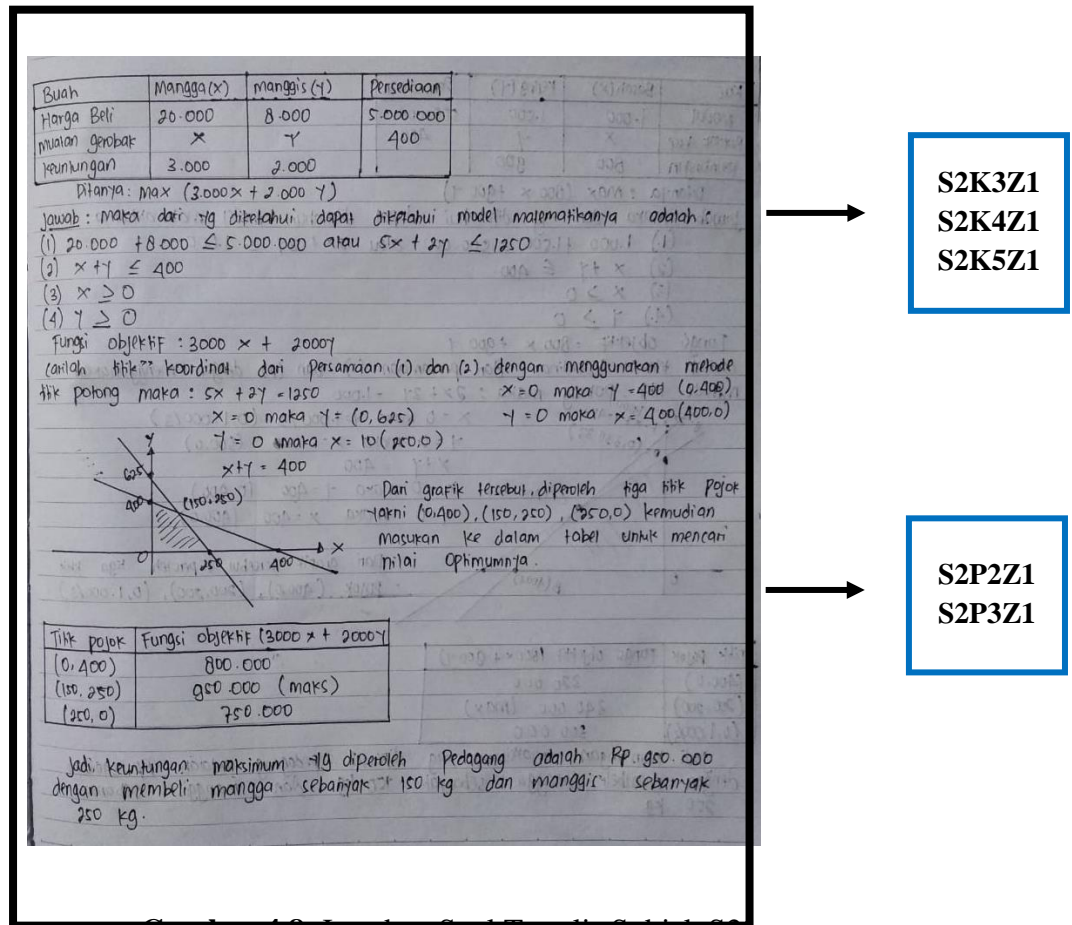 Buah Mangga(x) manggis(y) Persediaan
Harga Beli 20.000 8.000 5.000.000
muatan gerobak x y 400
keuntungan 3.000 2.000
Ditanya: max (3.000x + 2.000 y)
Jawab : maka dari yg diketahui dapat diketahui model matematikanya adalah :
(1) 20.000 + 8.000 ≤ 5.000.000 atau 5x + 2y ≤ 1250
(2) x+y ≤ 400
(3) x ≥ 0
(4) y ≥ 0
Fungsi objektif : 3000 x + 2000y
Carilah titik" koordinat dari persamaan (1) dan (2) dengan menggunakan metode
titik potong maka : 5x + 2y = 1250 x=0 maka y=400 (0,400)
x=0 maka y= (0,625) y=0 maka x=400(400,0)
y=0 maka x=10(250,0)
x+y = 400
Y
625
400
(150,250)
0
250
400
X
Dari grafik tersebut, diperoleh tiga titik pojok
yakni (0,400), (150,250), (250,0) kemudian
masukan ke dalam tabel untuk mencari
nilai Optimumnya.
Titik pojok Fungsi objektif (3000 x + 2000y
(0,400) 800.000
(150,250) 950.000 (maks)
(250,0) 750.000
Jadi, keuntungan maksimum yg diperoleh Pedagang adalah Rp.950.000
dengan membeli mangga sebanyak 150 kg dan manggis sebanyak
250 kg.
S2K3Z1
S2K4Z1
S2K5Z1
S2P2Z1
S2P3Z1